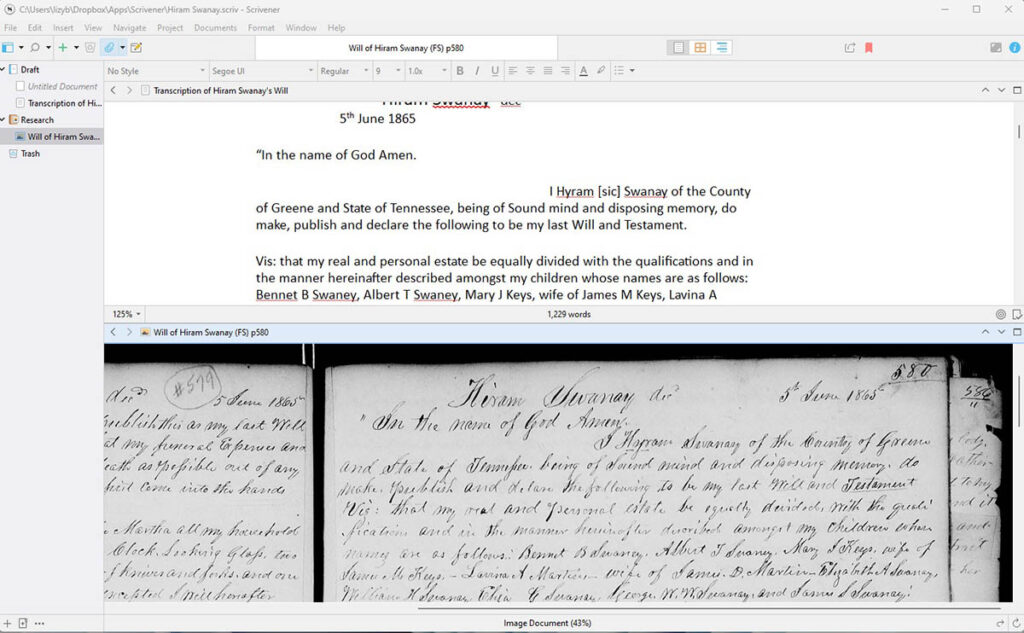 C:\Users\lizyb\Dropbox\Apps\Scrivener\Hiram Swanay.scriv - Scrivener
File Edit Insert View Navigate Project Documents Format Window Help
Will of Hiram Swanay (FS) p580
Draft
Untitled Document
Transcription of Hi...
Research
Will of Hiram Swa...
Trash
No Style Segoe UI Regular 9 1.0x B I U A
Transcription of Hiram Swanay's Will
Hiram Swanay dec
5th June 1865
“In the name of God Amen.
I Hyram [sic] Swanay of the County
of Greene and State of Tennessee, being of Sound mind and disposing memory, do
make, publish and declare the following to be my last Will and Testament.
Vis: that my real and personal estate be equally divided with the qualifications and in
the manner hereinafter described amongst my children whose names are as follows:
Bennet B Swaney, Albert T Swaney, Mary J Keys, wife of James M Keys, Lavina A
125% 1,229 words
Will of Hiram Swanay (FS) p580
#579
dec'd 5 June 1865
publish this as my last Will
at my funeral Expenses and
death as possible out of any
first come into the hands
Martha all my household
Clock, Looking Glass, two
of knives and forks, and one
excepted I will hereafter
580
Hiram Swanay dec'd 5th June 1865
"In the name of God Amen.
I Hyram Swanay of the County of Greene
and State of Tennessee being of Sound mind and disposing memory, do
make, publish and declare the following to be my last Will and Testament
Viz: that my real and personal estate be equally divided, with the quali
fications and in the manner hereinafter described amongst my children whose
names are as follows: Bennet B Swaney, Albert T Swaney, Mary J Keys, wife of
James M Keys, - Lavina A Martin - wife of James D. Martin - Elizabeth A Swanay,
William H Swanay, Eliza C Swanay, George W. W. Swanay, and James S Swanay:
Image Document (43%)